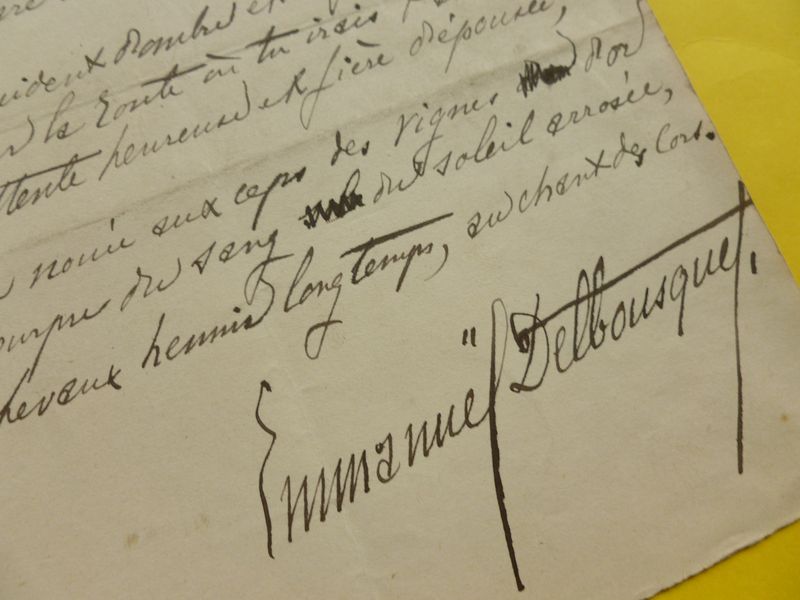 d'ombre et
la route où tu irais
heureuse et fière d'épousée,
nouée aux ceps des vignes d'or
du sang du soleil arrosée,
hennir longtemps, au chant des cors.
Emmanuël Delbousquet.